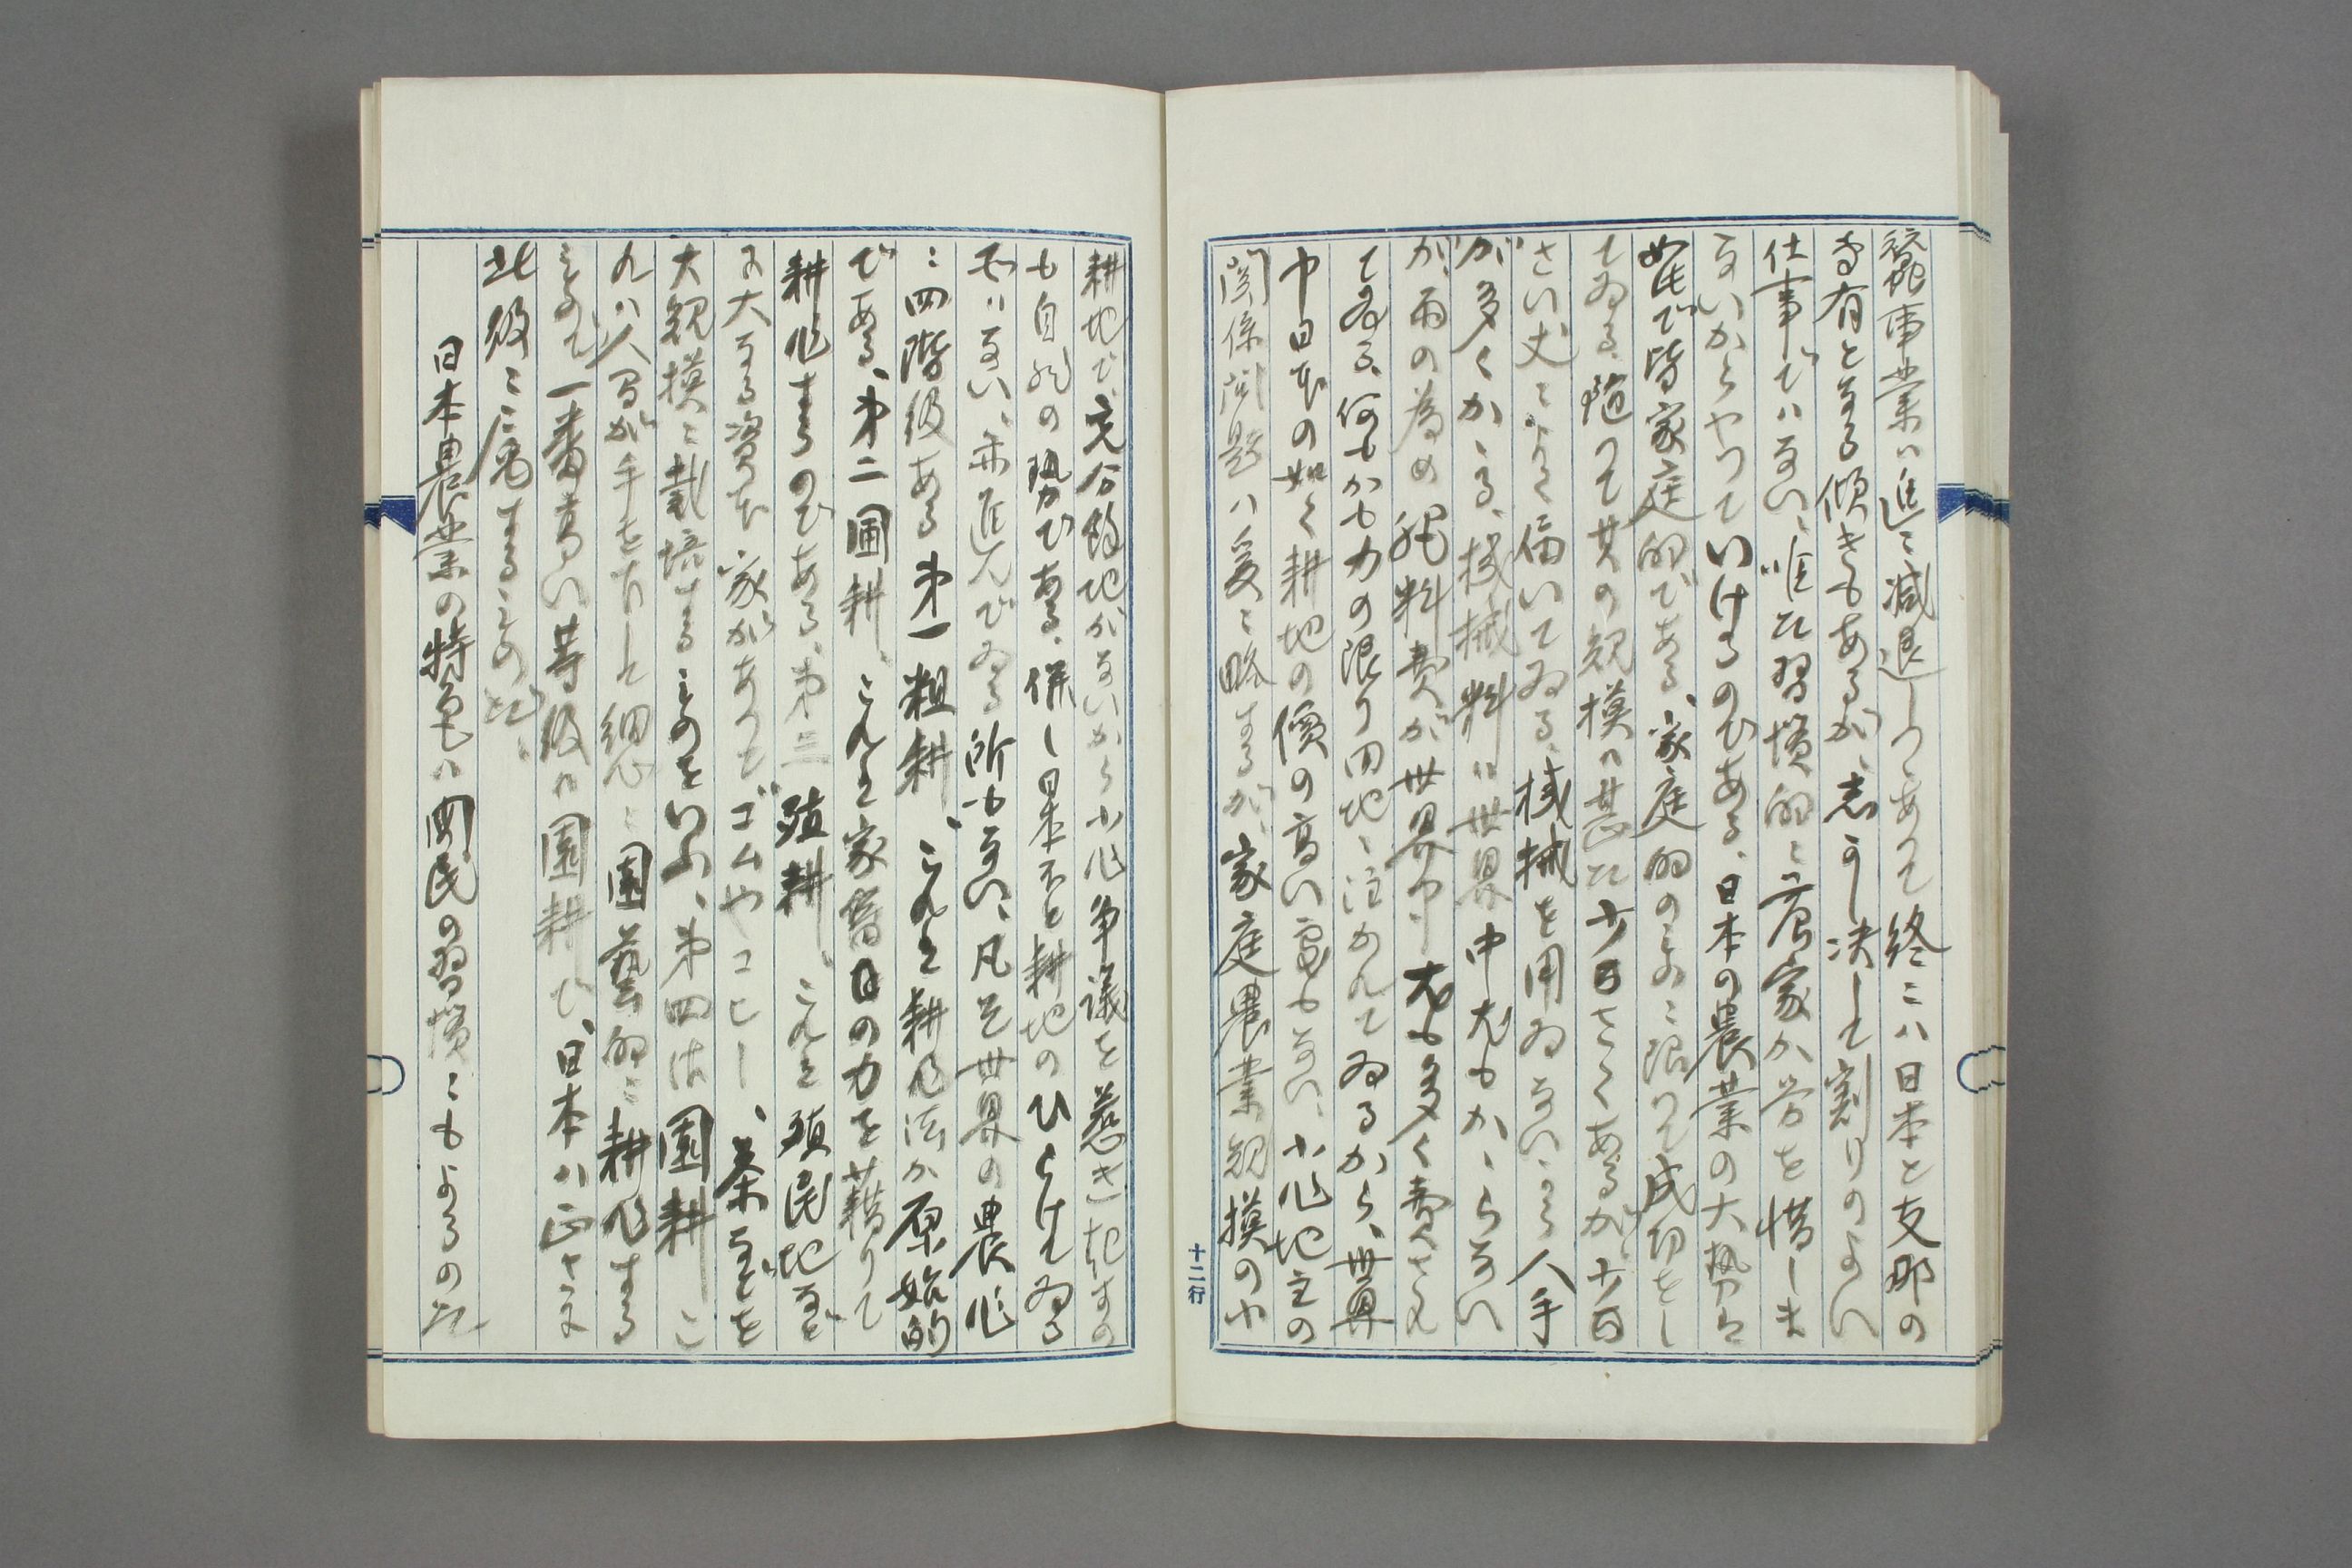 蚕事業ハ追々減退しつゝあつて終ニハ日本と支那の
専有となる傾きもあるが、決して割りのよい
仕事でハない、唯だ習慣的ニ農家か労を惜しま
ないからやつていけるのである、日本の農業の大勢は
皆家庭的である、家庭的のものニ限つて成功をし
てゐる、随つて其の規模ハ甚だ少さくあるが、少
さい丈ニよく働いてゐる、機械を用ゐないから人手
が多くかゝる、機械料ハ世界中尤もかゝらない
が、而の為め肥料費が世界中尤も多く費さえ
てゐる、何もかも力の限り田地ニ注かれてゐるから、世界
中日本の如く耕地の價の高い處もない、小作地主の
関係問題ハ爰ニ略するが、家庭農業規模の小
耕地で、充分餘地がないから小作争議を惹き起すの
も自然の勢である、併し日本ほと耕地のひらけてゐる
でハない、亦進んでゐる所もない、凡そ世界の農作
ニ四階級ある第一粗耕、これは耕作法か原始的
である、第二圃耕、これは家畜の力を藉りて
耕作するのである、第三殖耕、これは殖民地など
に大なる資本家があつてゴムやコヒー、茶などを
大規模ニ栽培するものをいふ、第四は園耕こ
れハ人間が手を下して細心ニ園藝的ニ耕作する
もので一番高い等級ハ園耕で、日本ハ正さに
此級ニ属するもの也、
日本農業の特色ハ国民の習慣ニもよるのだ
十二行